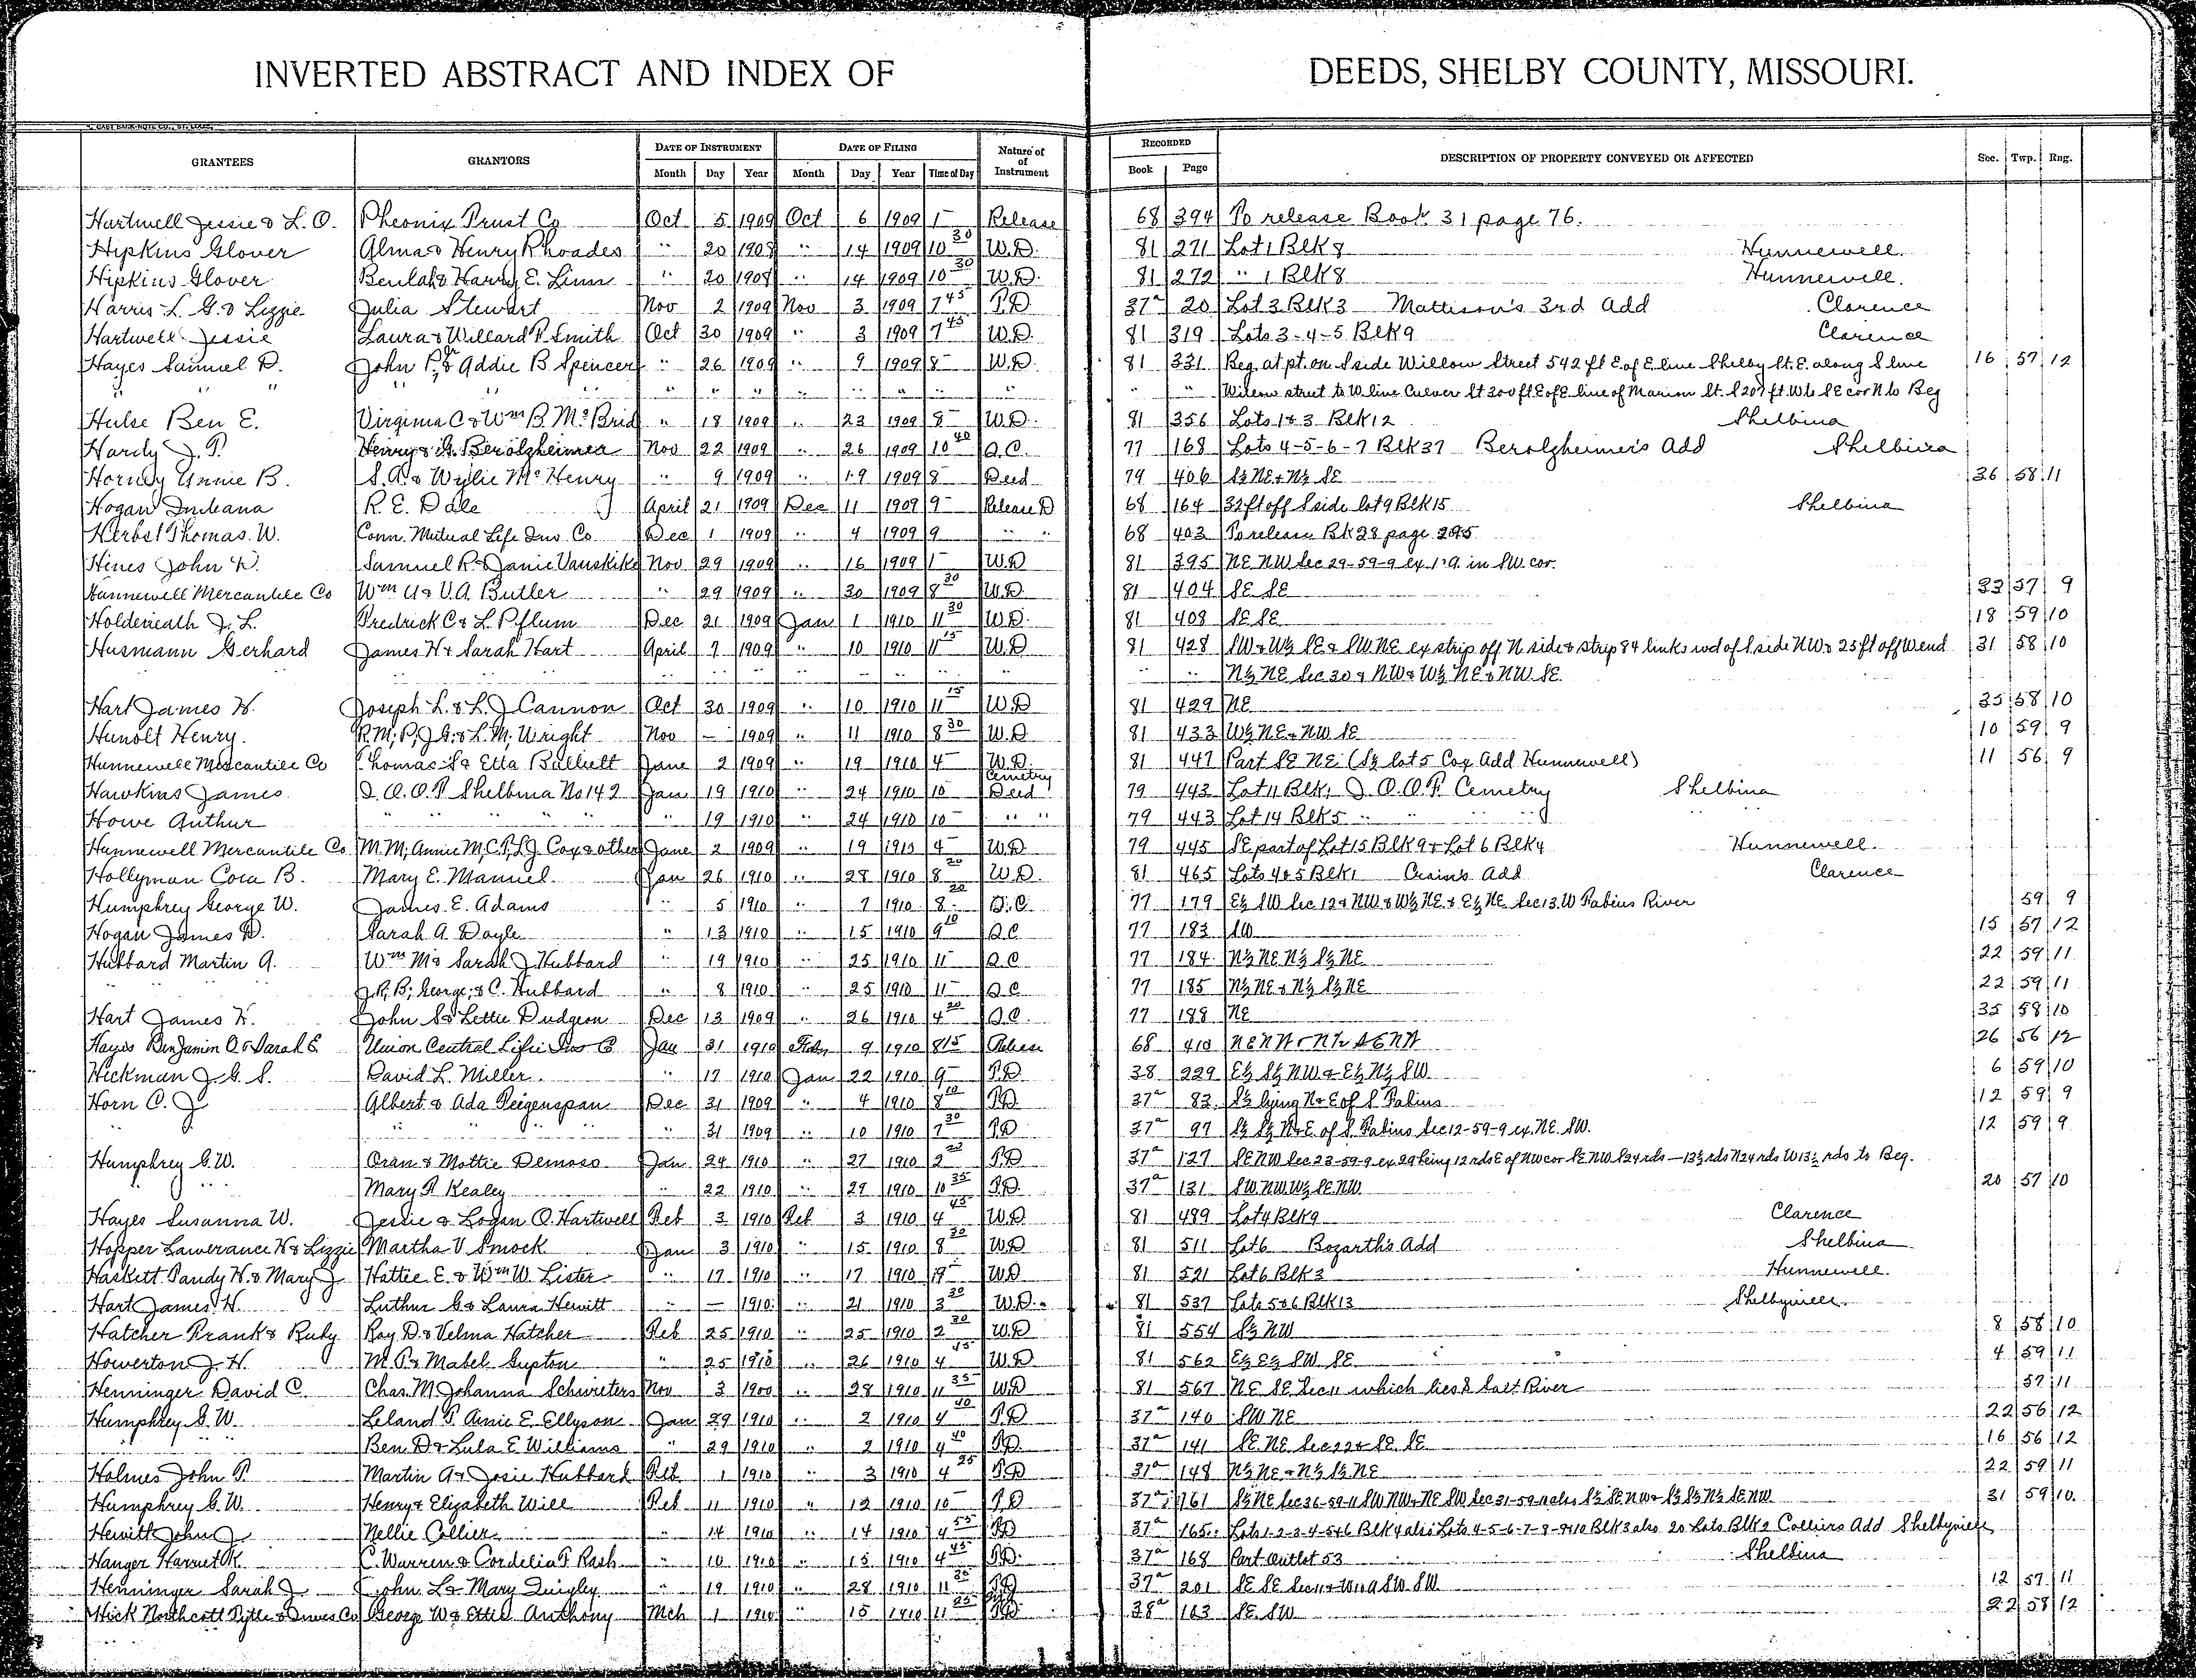 INVERTED ABSTRACT AND INDEX OF DEEDS, SHELBY COUNTY, MISSOURI.
GRANTEES GRANTORS DATE OF INSTRUMENT DATE OF FILING Nature of of Instrument RECORDED DESCRIPTION OF PROPERTY CONVEYED OR AFFECTED Sec. Twp. Rng.
Month Day Year Month Day Year Time of Day Book Page
Hartwell Jessie & L. O. Pheonix Trust Co Oct 5 1909 Oct 6 1909 1— Release 68 394 To release Book 31 page 76.
Hipkins Glover Alma & Henry Rhoades " 20 1908 " 14 1909 10 30 W.D. 81 271 Lot 1 Blk 8 Hunnewell.
Hipkins Glover Beulah & Harry E. Linn " 20 1908 " 14 1909 10 30 W.D. 81 272 " 1 Blk 8 Hunnewell.
Harris L. G. & Lizzie Julia Stewart Nov 2 1909 Nov 3 1909 7 45 T.D 37a 20 Lot 3 Blk 3 Mattison's 3rd Add Clarence
Hartwell Jessie Laura & Willard P. Smith Oct 30 1909 " 3 1909 7 45 W.D. 81 319 Lots 3-4-5 Blk 9 Clarence
Hayes Samuel D. John P. & Addie B Spencer " 26 1909 " 9 1909 8— W.D. 81 331 Beg. at pt. on S side Willow Street 542 ft E of E line Shelby St. E. along S line 16 57 12
" " " " " " " " " " " " Willow street to W line Culver St 300 ft E of E line of Marion St. S 207 ft. W to SE cor N to Beg
Hulse Ben E. Virginia C & Wm B. McBrid " 18 1909 " 23 1909 8— W.D. 81 356 Lots 1 & 3 Blk 12 Shelbina
Hardy J. P. Henry & G. Berolzheimea Nov 22 1909 " 26 1909 10 40 Q.C. 77 168 Lots 4-5-6-7 Blk 37 Berolzheimer's Add Shelbina
Hornby Annie B. S. A. & Wylie McHenry " 9 1909 " 19 1909 8— Deed 79 406 S½ NE & N½ SE 36 58 11
Hogan Indiana R. E. Dale April 21 1909 Dec 11 1909 9— Release D 68 164 32 ft off S side lot 9 Blk 15 Shelbina
Herbst Thomas W. Conn. Mutual Life Ins Co Dec 1 1909 " 4 1909 9 " " 68 403 To release Bk 28 page 295
Hines John W. Samuel R & Janie Vanskike Nov 29 1909 " 16 1909 1— W.D 81 395 NE NW Sec 29-59-9 ex 1 a. in SW cor.
Hunnewell Mercantile Co Wm U & V.A. Butler " 29 1909 " 30 1909 8 30 W.D. 81 404 SE SE 33 57 9
J. L. Fredrick C & L. Pflum Dec 21 1909 Jan 1 1910 11 30 W.D. 81 408 SE SE 18 59 10
Husmann Gerhard James H & Sarah Hart April 7 1909 " 10 1910 11 15 W.D 81 428 SW & W½ SE & SW NE ex strip off N side & strip 84 links wd of S side NW & 25 ft off W end 31 58 10
" " " " " " " " N½ NE Sec 30 & NW & W½ NE & NW SE
Hart James H. Joseph L. & L. J Cannon Oct 30 1909 " 10 1910 11 15 W.D 81 429 NE 35 58 10
Hunolt Henry. R.M; P; J G; & L. M; Wright Nov — 1909 " 11 1910 8 30 W.D 81 433 W½ NE & NW SE 10 59 9
Hunnewell Mercantile Co Thomas S & Etta Balliett June 2 1909 " 19 1910 4— W.D. 81 447 Part SE NE (S½ lot 5 Cox Add Hunnewell) 11 56 9
Hawkins James I. O. O. F Shelbina No 142 Jan 19 1910 " 24 1910 10— Cemetry Deed 79 443 Lot 11 Blk 1 I. O. O. F. Cemetry Shelbina
Howe Authur " " " " " 19 1910 " 24 1910 10— " " 79 443 Lot 14 Blk 5 " " "
Hunnewell Mercantile Co M.M; Annie M; C.T; L.J. Cox & other June 2 1909 " 19 1910 4— W.D 79 445 SE part of Lot 15 Blk 9 & Lot 6 Blk 4 Hunnewell.
Hollyman Cora B. Mary E. Manuel Jan 26 1910 " 28 1910 8 20 W.D. 81 465 Lots 4 & 5 Blk 1 Crain's Add Clarence
Humphrey George W. James E. Adams " 5 1910 " 7 1910 8 20 Q.C. 77 179 E½ SW Sec 12 & NW & W½ NE & E½ NE Sec 13 W Fabius River 59 9
Hogan James D. Sarah A Doyle " 13 1910 " 15 1910 9 10 Q.C 77 183 SW 15 57 12
Hubbard Martin A. Wm M & Sarah J Hubbard " 19 1910 " 25 1910 11— Q.C 77 184 N½ NE N½ S½ NE 22 59 11
" " J.R; B; George; & C. Hubbard " 8 1910 " 25 1910 11— Q.C 77 185 N½ NE & N½ S½ NE 22 59 11
Hart James H. John S & Lettie Dudgeon Dec 13 1909 " 26 1910 4 20 Q.C. 77 188 NE 35 58 10
Hayes Benjamin O & Sarah E Union Central Life Ins Co Jan 31 1910 Feb 9 1910 8 15 Release 68 410 NE NW & N½ SE NW 26 56 12
Hickman J. G. S. David L. Miller. " 17 1910 Jan 22 1910 9— T.D. 38 229 E½ S½ NW & E½ N½ SW 6 59 10
Horn C. J Albert & Ada Feigenspan Dec 31 1909 " 4 1910 8 10 T.D. 37a 83 S½ lying N & E of S Fabius 12 59 9
" " " " " 31 1909 " 10 1910 7 30 T.D 37a 97 S½ S½ N & E. of S. Fabius Sec 12-59-9 ex. NE. SW. 12 59 9
Humphrey G. W. Oran & Mottie Demoss Jan 24 1910 " 27 1910 2 T.D 37a 127 SE NW Sec 23-59-9 ex 2a being 12 rds E of NW cor SE NW S 24 rds — 13½ rds N 24 rds W 13½ rds to Beg.
" " Mary F Kealey " 22 1910 " 29 1910 10 35 T.D. 37a 131 SW NW W½ SE NW 20 57 10
Hayes Susanna W. Jessie & Logan O. Hartwell Feb 3 1910 Feb 3 1910 4 45 W.D 81 499 Lot 4 Blk 9 Clarence
Hopper Lawerance H & Lizzie Martha V Smock Jan 3 1910 " 15 1910 8 30 W.D 81 511 Lot 6 Bozarth's Add Shelbina
Haskett Pandy H. & Mary J Hattie E. & Wm W Lister " 17 1910 " 17 1910 9— W.D 81 521 Lot 6 Blk 3 Hunnewell.
Hart James H. Luthur G & Laura Hewitt " — 1910 " 21 1910 3 30 W.D. 81 537 Lots 5 & 6 Blk 13 Shelbyville.
Hatcher Frank & Ruby Roy D. & Velma Hatcher Feb 25 1910 " 25 1910 2 30 W.D 81 554 S½ NW 8 58 10
Howerton J. H. M. P. & Mabel Gupton " 25 1910 " 26 1910 4 45 W.D 81 562 E½ E½ SW SE 4 59 11
Henninger David C. Chas. M Johanna Schwieters Nov 3 1900 " 28 1910 11 35 W.D 81 567 NE SE Sec 11 which lies S Salt River 57 11
Humphrey G. W. Leland P. Amie E. Ellyson Jan 29 1910 " 2 1910 4 40 T.D 37a 140 SW NE 22 56 12
" " Ben D & Lula E Williams " 29 1910 " 2 1910 4 40 T.D. 37a 141 SE NE Sec 22 & SE SE 16 56 12
Holmes John P. Martin A & Josie Hubbard Feb 1 1910 " 3 1910 4 25 T.D 37a 148 N½ NE & N½ S½ NE 22 59 11
Humphrey G. W. Henry & Elizabeth Will Feb 11 1910 " 12 1910 10— T.D 37a 161 S½ NE Sec 36-59-11 SW NW & NE SW Sec 31-59-11 also S½ SE NW & S½ S½ N½ SE NW 31 59 10.
Hewitt John J Nellie Collier " 14 1910 " 14 1910 4 55 T.D 37a 165 Lots 1-2-3-4-5 & 6 Blk 4 also Lots 4-5-6-7-8-9 & 10 Blk 3 also 20 Lots Blk 2 Colliers Add Shelbyville
Hanger Harriet K. C. Warren & Cordelia F. Rash " 10 1910 " 15 1910 4 45 T.D. 37a 168 Part Outlot 53 Shelbina
Henninger Sarah J John L & Mary Quigley " 19 1910 " 28 1910 11 35 T.D 37a 201 SE SE Sec 11 & SW SW 12 57 11
Hick Northcott Tytle & Inves Co George W & Ettie Anthony Mch 1 1910 " 15 1910 11 25 T.D 38a 163 SE SW 22 58 12